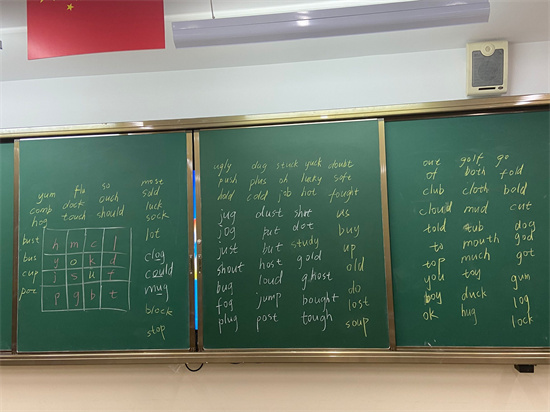 flu so most
yum sold
comb dock ouch luck
hog touch should sock
lot
bust h m c l
bus y o k d clog
cup j s u f could
poe p g b t mug
block
stop
ugly dog stuck yuck doubt
push plus oh lucky soft
hold cold job hot fought
jug dust shot us
jog put dot buy
just but study up
shout host gold old
bug loud ghost do
fog jump bought lost
plug post tough soup
one golf go
of both fold
club cloth bold
cloud mud cut
told tub dog
to mouth god
top much got
you toy gum
boy duck log
ok hug lock